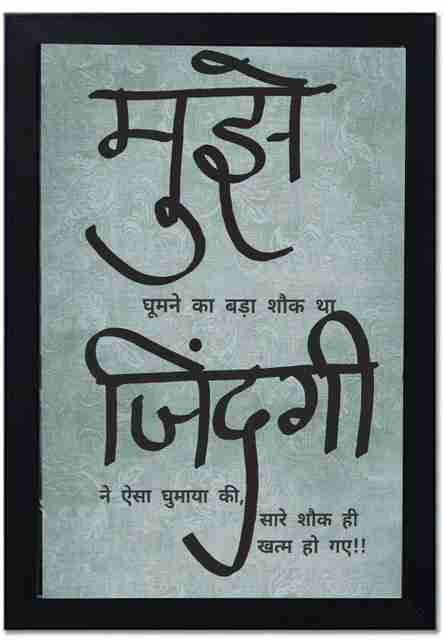 मुझे
घूमने का बड़ा शौक था
जिंदगी
ने ऐसा घुमाया की,
सारे शौक ही
खत्म हो गए!!